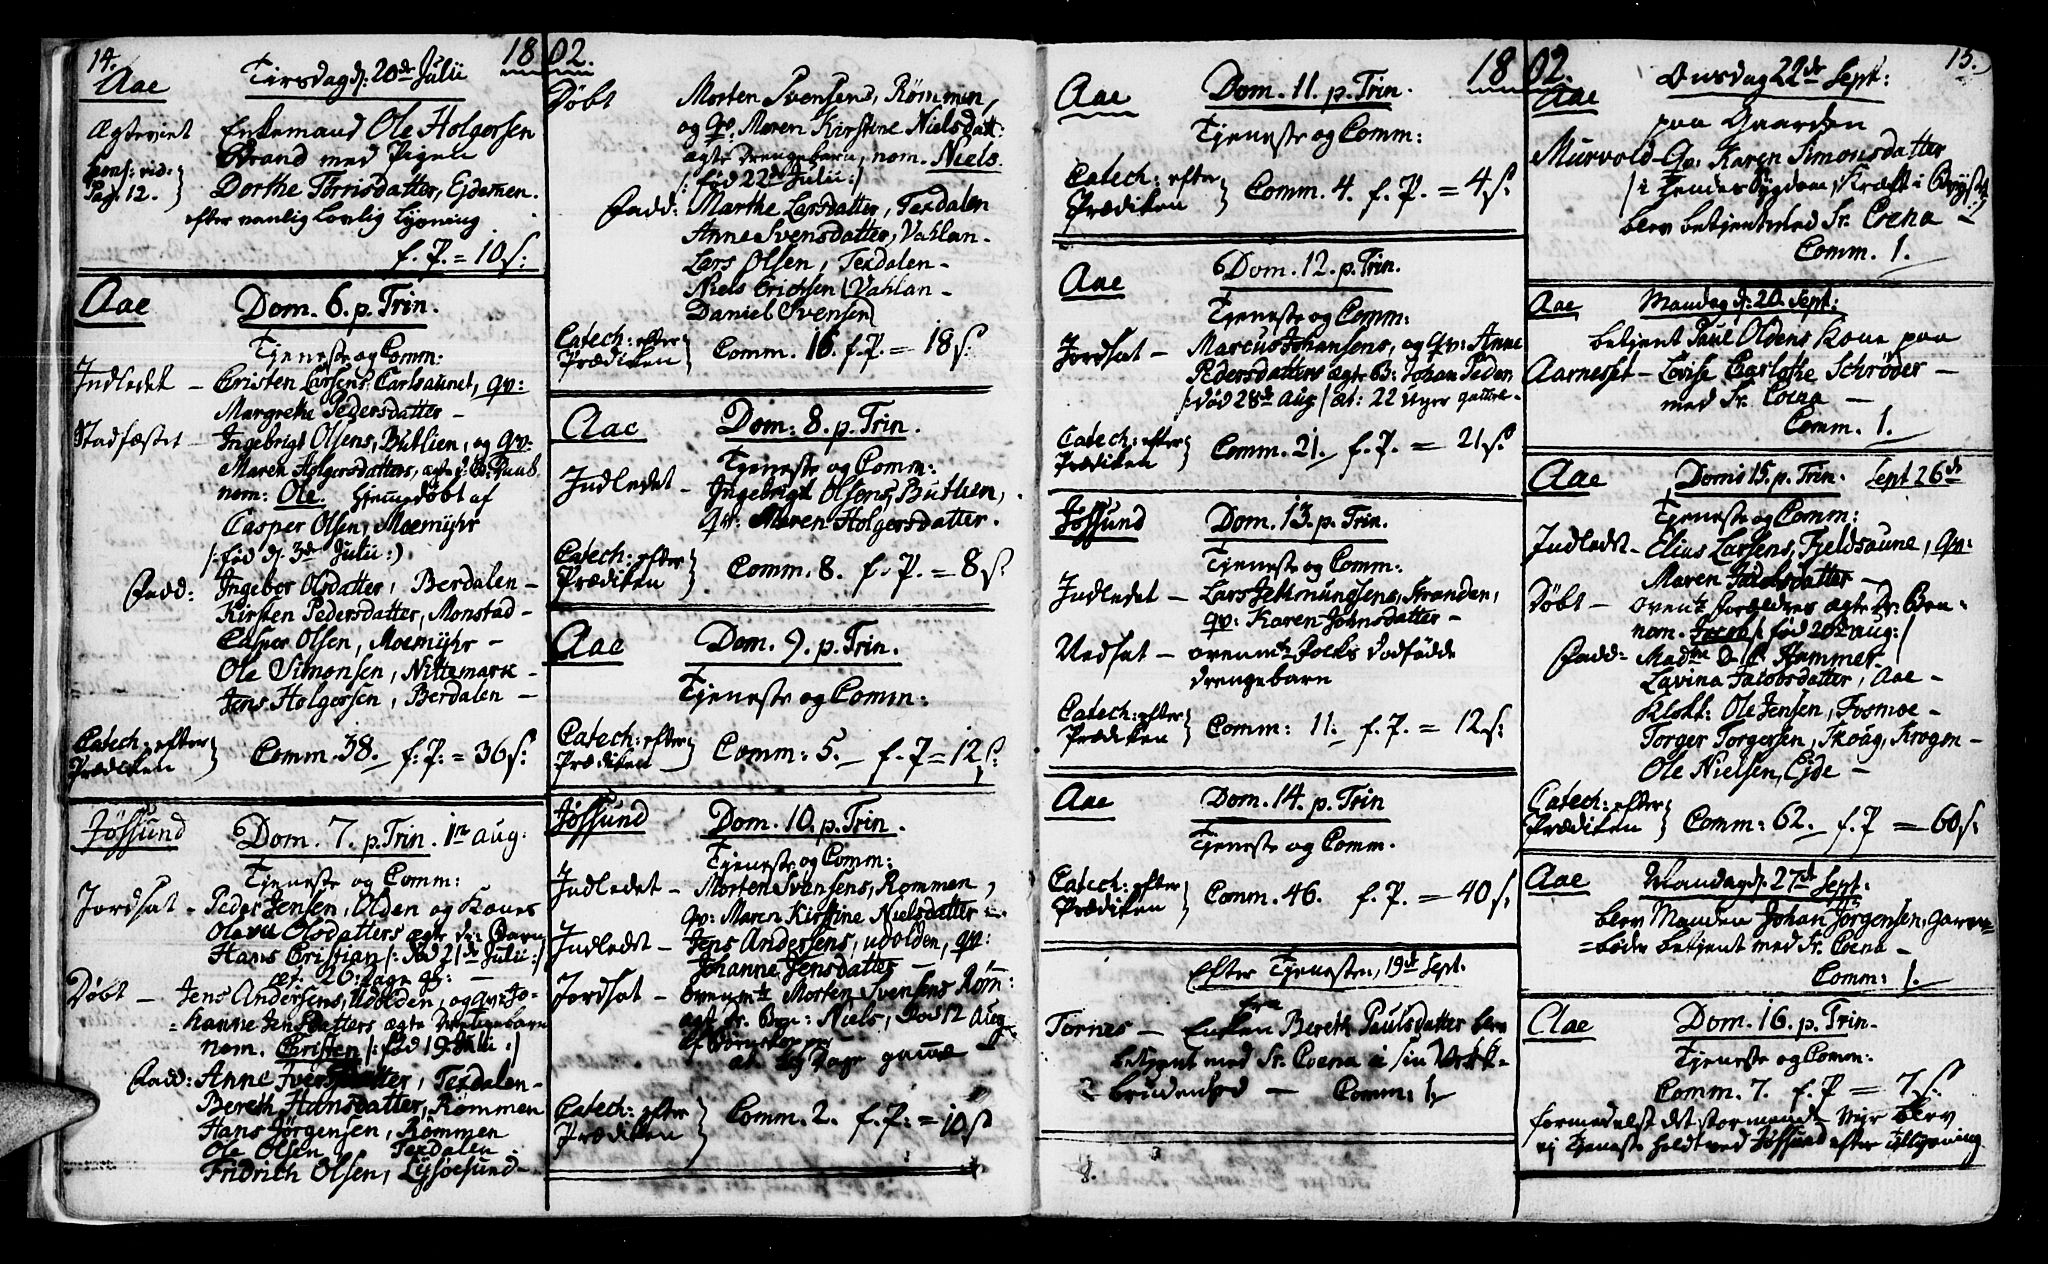 14.
1802.
Aae
Tirsdag d: 20de Julii
Ægteviet Enkemand Ole Holgersen
Brand med Pigen
Cons: vid. Pag. 12. } Dorthe Torrisdatter, Ejdemen.
efter vanlig Lovlig Lysning
f. P. = 10 s:
Aae Dom. 6. p. Trin.
Tjeneste og Comm:
Indledet – Cristen Larsens, Carlsaunet, qv:
Margrethe Pedersdatter –
Stadfæstet – Ingebrigt Olsens, Butlien, og qv:
Maren Holgersdatters, ægte
nom: Ole. Hjemmedøbt af
Casper Olsen, Moemyhr
/: fød d. 3de Julii :/
Fadd: Ingebor Olsdatter, Berdalen –
Kirsten Pedersdatter, Monstad –
Casper Olsen, Moemyhr –
Ole Simonsen, Nittemark –
Jens Holgersen, Berdalen –
Catech: efter Prædiken } Comm. 38. f: P: = 36 s:
Jøssund Dom. 7. p. Trin. 1te Aug:
Tjeneste og Comm:
Jordsat – Peder Jensen, Olden og Kones
Olava Olsdatters ægte Dr: Barn
Hans Cristian /: død 21de Julii :/
æt: 26 Dage g:
Døbt – Jens Andersens, Udolden, og qv: Jo-
=hanne Jensdatters ægte Drengebarn
nom. Christen /: fød 19 Julii :/
Fadd: Anne Iversdatter, Texdalen –
Bereth Hansdatter, Rømmen
Hans Jørgensen, Rømmen
Ole Olsen, Texdalen –
Fridrich Olsen, Lysøesund –
Døbt Morten Svensens, Rømmen,
og qv. Maren Kirstine Nielsdatt:
ægte Drengebarn, nom. Niels.
/: fød 22de Julii :/
Fadd: Marthe Larsdatter, Texdalen
Anne Svensdatter, Vahlan –
Lars Olsen, Texdalen –
Niels Erichsen, Vahlan –
Daniel Svensen
Catech: efter Prædiken } Comm. 16. f. P. = 18 s:
Aae Dom: 8. p. Trin.
Tjeneste og Comm:
Indledet – Ingebrigt Olsens, Butlien,
qv: Maren Holgersdatter.
Catech: efter Prædiken } Comm. 8. f. P. = 8 s.
Aae Dom. 9. p. Trin.
Tjeneste og Comm:
Catech: efter Prædiken } Comm: 5. f. P = 12 s:
Jøssund Dom. 10. p. Trin.
Tjeneste og Comm:
Indledet – Morten Svensens, Rømmen,
qv: Maren Kirstine Nielsdatter
Indledt – Jens Andersens, Udolden, qv:
Johanne Jensdatter –
Jordsat – ovenmte Morten Svensens Rømm:
ægte Dr. Brn: Niels, død 12 Aug
Dage gamel –
Catech: efter Prædiken } Comm. 2. f. P. = 10 s
1802.
15.
Aae Dom. 11. p. Trin.
Tjeneste og Comm:
Catech: efter Prædiken } Comm. 4. f. P. = 4 s.
Aae Dom. 12. p. Trin.
Tjeneste og Comm:
Jordsat – Marcus Johansens, og qv: Anne
Pedersdatters ægte B: Johan Peder
/: død 28de Aug / æt: 22 Uger
Catech: efter Prædiken } Comm. 21. f. P. = 21 s
Jøssund Dom. 13. p. Trin.
Tjeneste og Comm:
Indledet – Lars Jetmundsens, Stranden,
qv: Karen Johnsdatter –
Nedsat – ovenmte Folks dødfødde
Drengebarn
Catech: efter Prædiken } Comm: 11: f. P. = 12 s:
Aae Dom. 14. p. Trin
Tjeneste og Comm.
Catech: efter Prædiken } Comm. 46. f. P. = 40 s,
Efter Tjenesten, 19de Sept:
Tornes – Enken Bereth Paulsdatter blev
betjent med Sr. Coena i sin
brudenhed – Comm: 1.
Aae Onsdag 22de Sept:
paa Gaarden
Murvold Qv. Karen Simonsdatter
/ i Tender Sygdom, Kræft i Bryst
blev betjent med Sr. Coena –
Comm. 1.
Aae Mandag d: 20. Sept:
betjent Paul Oldens Kone paa
Aarnesset – Lovise Charlothe Schrøder –
med Sr. Coena –
Comm. 1.
Aae Dom: 15. p. Trin. Sept 26de
Tjeneste og Comm:
Indledt – Elias Larsens, Fjeldsaune, qv:
Maren Jacobsdatter –
Døbt – ovente Forældres ægte Dr. Brn =
nom. Jacob /: fød 20de Aug: /
Fadd: Madme Hammer –
Lavina Jacobsdatter, Aae –
Klokk: Ole Jensen, Fosmoe –
Torger Torgersen, Skoug, Krogen –
Ole Nielsen, Eide –
Catech: efter Prædiken } Comm: 62. f. P = 60 s:
Aae Mandag d. 27de Sept:
blev Manden Johan Jørgensen, Garver=
=bøde betjent med Sr. Coena –
Comm: 1.
Aae Dom. 16. p. Trin.
Tjeneste og Comm:
Comm. 7. f. P = 7 s.
formedelst det stormende Veir blev
ej Tjeneste holdt ved Jøssund efter Tillysning